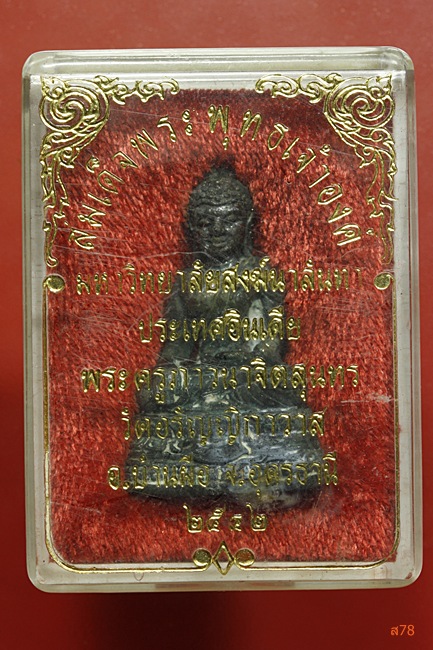 สมเด็จพระพุทธเจ้าองค์
มหาวิทยาลัยสงฆ์นาลันทา
ประเทศอินเดีย
พระครูภาวนาจิตสุนทร
วัดอรัญญิกาวาส
อ.บ้านผือ จ.อุดรธานี
๒๕๔๒
ส78